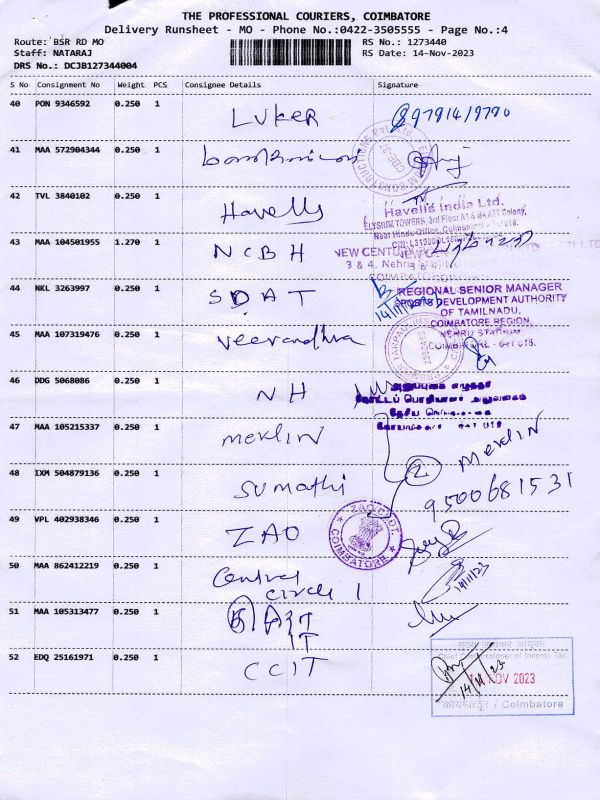 THE PROFESSIONAL COURIERS, COIMBATORE
Delivery Runsheet - MO - Phone No.:0422-3505555 - Page No.:4
Route: BSR RD MO RS No.: 1273440
Staff: NATARAJ RS Date: 14-Nov-2023
DRS No.: DCJB127344004
S No Consignment No Weight PCS Consignee Details Signature
40 PON 9346592 0.250 1 LUKER
41 MAA 572904344 0.250 1
42 TVL 3840102 0.250 1 Havells
Havells India Ltd.
ELYSIUM TOWERS, 3rd Floor
43 MAA 104501955 1.270 1 NCBH
NEW CENTURY
3 & 4, Nehru
44 NKL 3263997 0.250 1 SDAT
REGIONAL SENIOR MANAGER
SPORTS DEVELOPMENT AUTHORITY
OF TAMILNADU,
COIMBATORE REGION,
NEHRU STADIUM
COIMBATORE - 641 018.
45 MAA 107319476 0.250 1 veerandhra
46 DDG 5068086 0.250 1 NH
47 MAA 105215337 0.250 1 merlin
2 merlin
48 IXM 504879136 0.250 1 sumathi 9500681531
49 VPL 402938346 0.250 1 ZAO
COIMBATORE
50 MAA 862412219 0.250 1 Central
circle 1
51 MAA 105313477 0.250 1
IT
52 EDQ 25161971 0.250 1 CCIT
Chief Commissioner of Income Tax
14/11/23
NOV 2023
/ Coimbatore